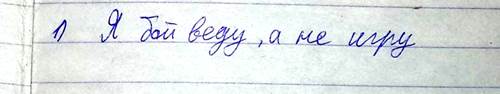 1) Я бой веду, а не игру